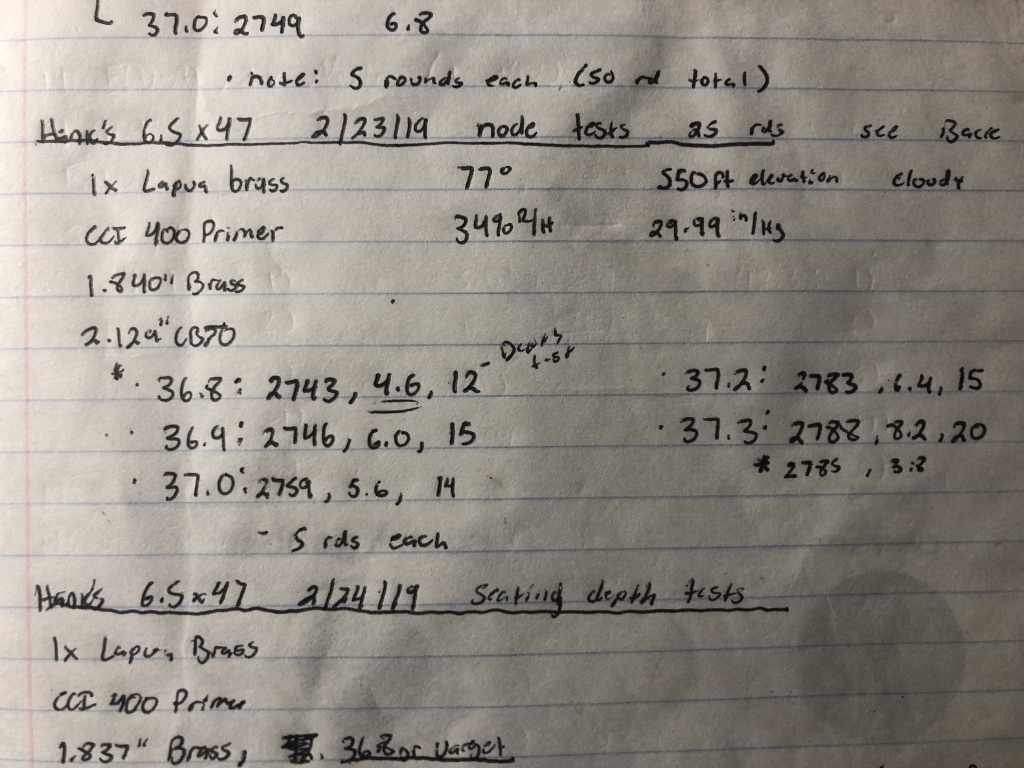 37.0: 2749 6.8
• note: 5 rounds each (50 rd total)
Hank's 6.5x47 2/23/19 node tests 25 rds see Back
1x Lapua brass 77° 550ft elevation cloudy
CCI 400 Primer 34% R/H 29.99 in/Hg
1.840" Brass
2.129" CBTO
* • 36.8: 2743, 4.6, 12 - Depth test • 37.2: 2783, 6.4, 15
• 36.9: 2746, 6.0, 15 • 37.3: 2788, 8.2, 20
• 37.0: 2759, 5.6, 14 * 2785, 3.8
- 5 rds each
Hank's 6.5x47 2/24/19 Seating depth tests
1x Lapua Brass
CCI 400 Primer
1.837" Brass, 36.8gr Varget